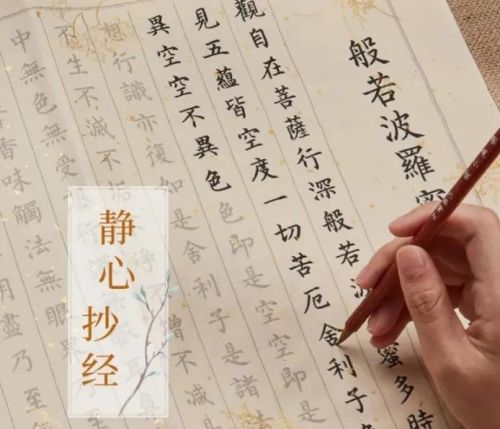 般若波羅
觀自在菩薩行深般若波
蜜多時
見五蘊皆空度一切苦厄舍利子
異空空不異色色即是空空即是
想行識亦復如是舍利子是諸
不生不滅不垢
不增不減
中無色無受想行識
香味觸法無眼界
盡乃至
静心抄经